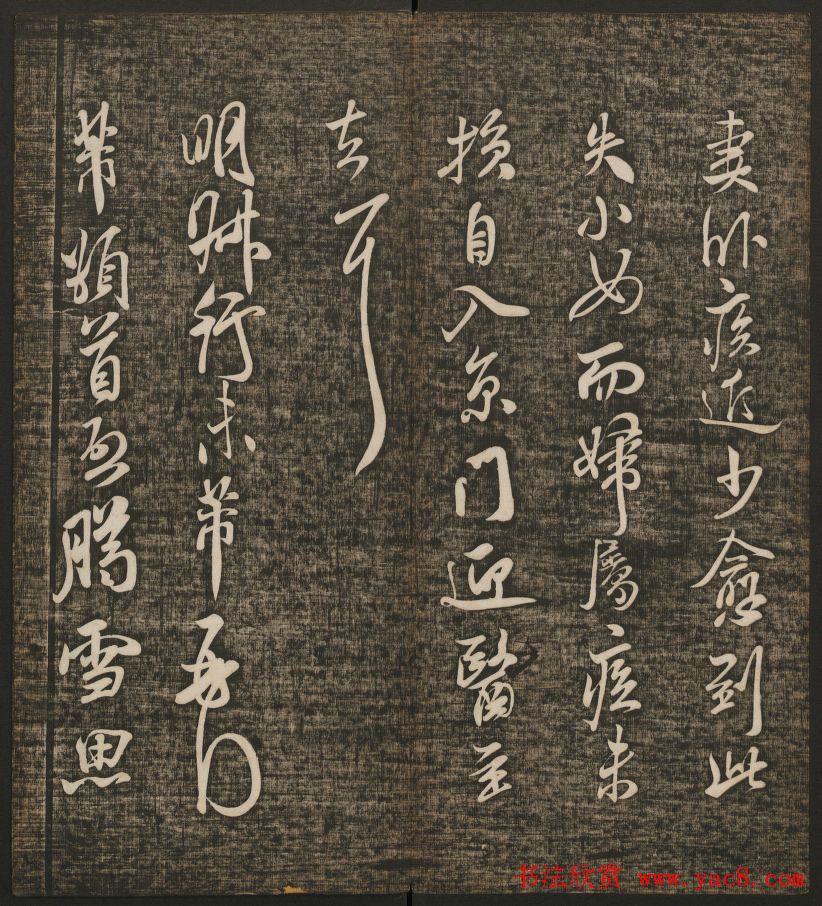 妻卧疾近少愈到此
失小女而婦屬疾未
損自入京门迎醫至
去
明
行未芾
芾頓首
臈雪思
书法欣赏 www.yac8.com